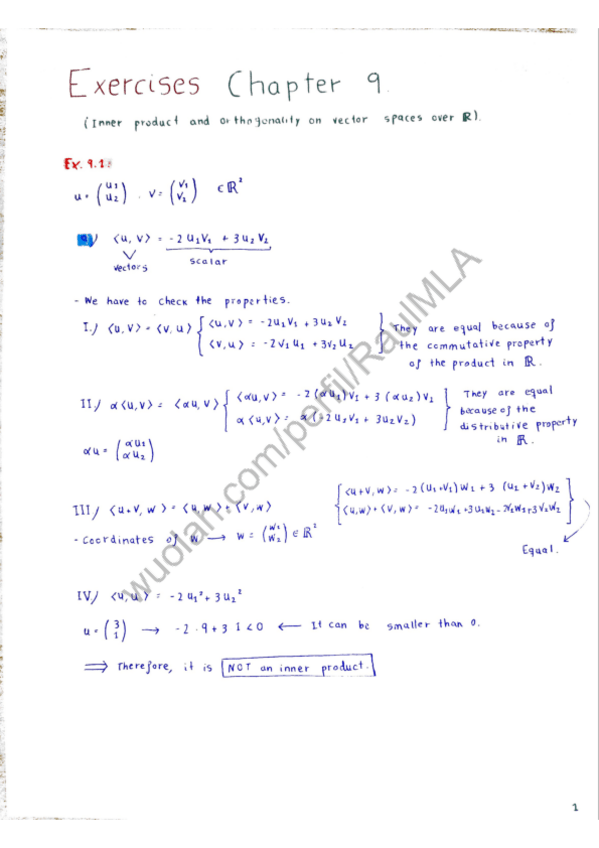 Exercises Chapter 9.
(Inner product and orthogonality on vector spaces over ℝ).
Ex. 9.1:
u = (u1 u2) , v = (v1 v2) ∈ ℝ²
a) ⟨u, v⟩ = -2 u1v1 + 3u2 v2
vectors scalar
- We have to check the properties.
I.) ⟨u, v⟩ = ⟨v, u⟩ { ⟨u, v⟩ = -2u1v1 + 3u2v2
⟨v, u⟩ = -2v1u1 + 3v2u2
They are equal because of
the commutative property
of the product in ℝ.
II) α⟨u, v⟩ = ⟨αu, v⟩ { ⟨αu, v⟩ = -2(αu1)v1 + 3(αu2)v2
α⟨u, v⟩ = α(-2u1v1 + 3u2v2)
They are equal
because of the
distributive property
in ℝ.
αu = (αu1 αu2)
III) ⟨u+v, w⟩ = ⟨u, w⟩ + ⟨v, w⟩
{ ⟨u+v, w⟩ = -2(u1+v1)w1 + 3(u2+v2)w2
- Coordinates of w → w = (w1 w2) ∈ ℝ²
Equal.
IV) ⟨u, u⟩ = -2u1² + 3u2²
u = (3 1) → -2·9+3·1<0 ← It can be smaller than 0.
⇒ Therefore, it is NOT an inner product.
wuolah.com/perfil/RaulMLA
1